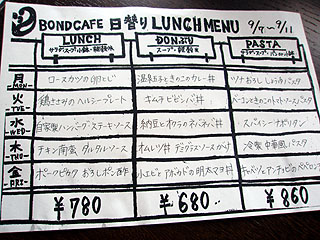 BONDCAFE 日替り LUNCH MENU 9/7〜9/11
LUNCH DONぶり PASTA
月 -MON- ロースカツの卵とじ 温泉玉子ときのこのカレー丼 ツナおろししょうゆパスタ
火 -TUE- 鶏ささみのヘルシープレート キムチビビンバ丼 ベーコンときのこのトマトソースパスタ
水 -WED- 自家製ハンバーグステーキソース 納豆とオクラのネバネバ丼 スパイシーナポリタン
木 -THU- チキン南蛮 タルタルソース オムレツ丼 デミグラスソースがけ 冷製 中華風パスタ
金 -FRI- ポークピカタ おろしポン酢 小エビとアボカドの明太マヨ丼 キャベツとアンチョビのペペロンチーノ
¥780 ¥680 ¥860